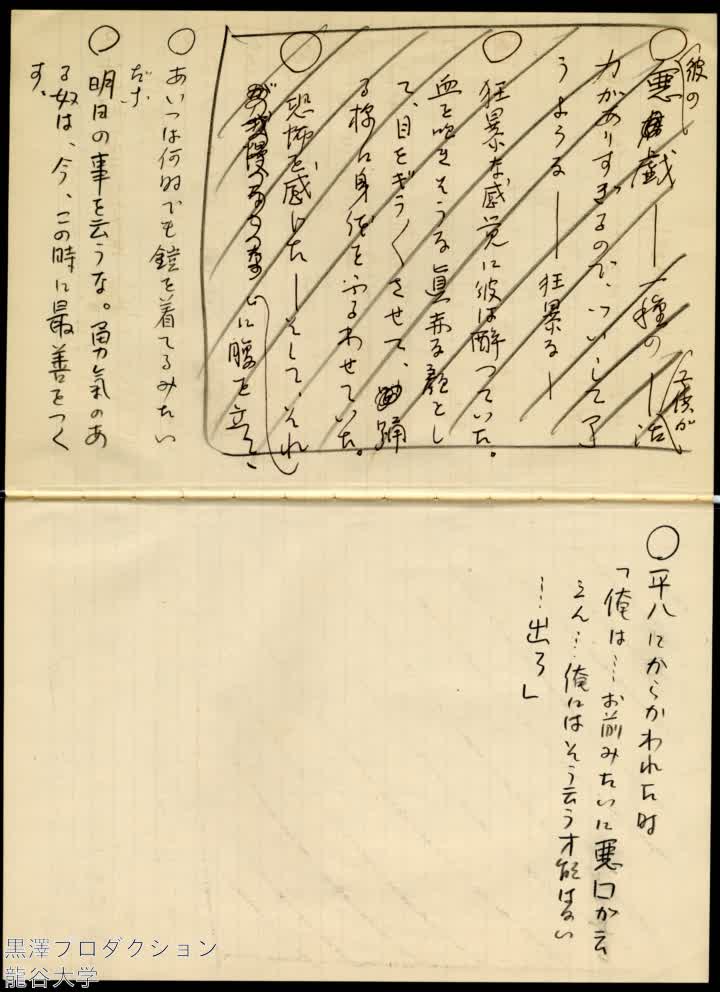 ○彼の悪戯―一種の―子供が活
力がありすぎるので、ついして了
うような―狂暴な―
○狂暴な感覚に彼は酔つていた。
血を吹きそうな真赤な顔をし
て、目をぎら〱させて、踊
る様に身体をふるわせていた。
○恐怖を感じた―そして、それ
に腹を立て、
○あいつは何時でも鎧を着てるみたい
だナ
○明日の事を云うな。勇氣のあ
る奴は、今、この時に最善をつく
す。
○平八にからかわれた時
「俺は……お前みたいに悪口が云
えん…俺にはそう云う才能はない
…出ろ」
黒澤プロダクション
龍谷大学